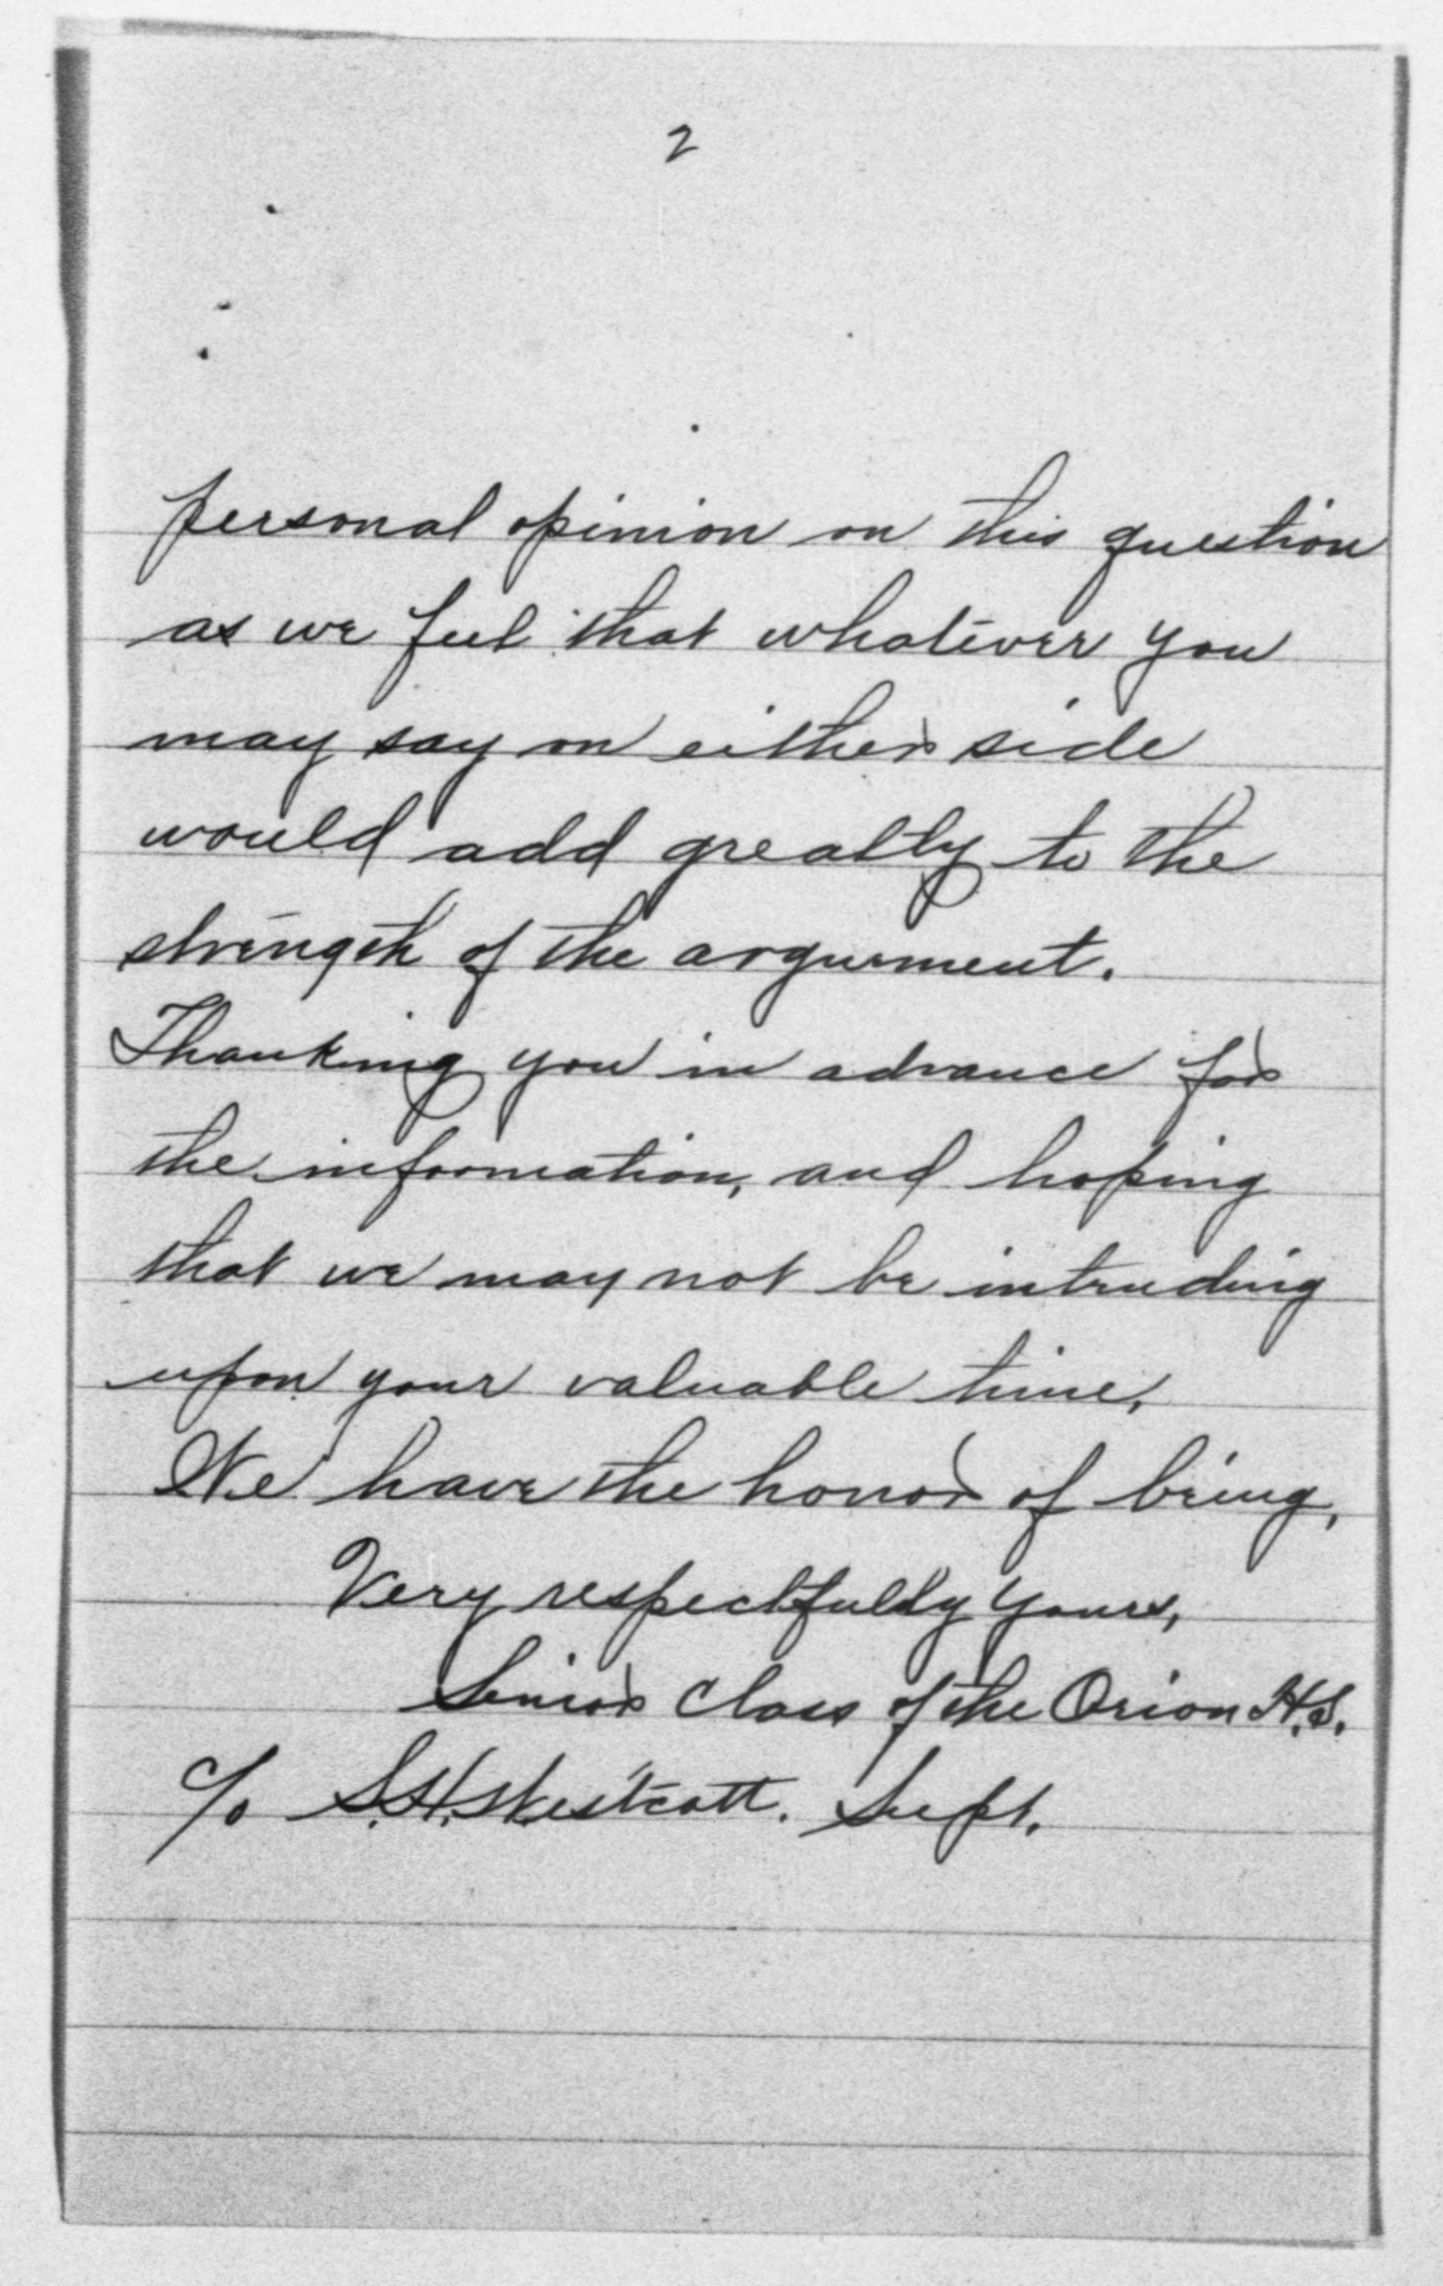 2
personal opinion on this question
as we feel that whatever you
may say on either side
would add greatly to the
strength of the argurment.
Thanking you in advance for
the information, and hoping
that we may not be intruding
upon your valuable time,
We have the honor of being,
Very respectfully yours,
Senior Class of the Orion H.S.
c/o S.H. Westcott. Supt.